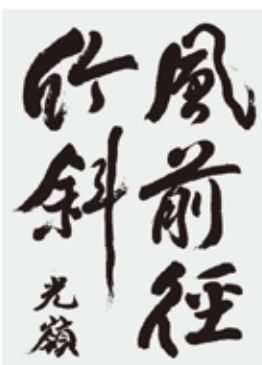 風前徑
竹斜
光嶺